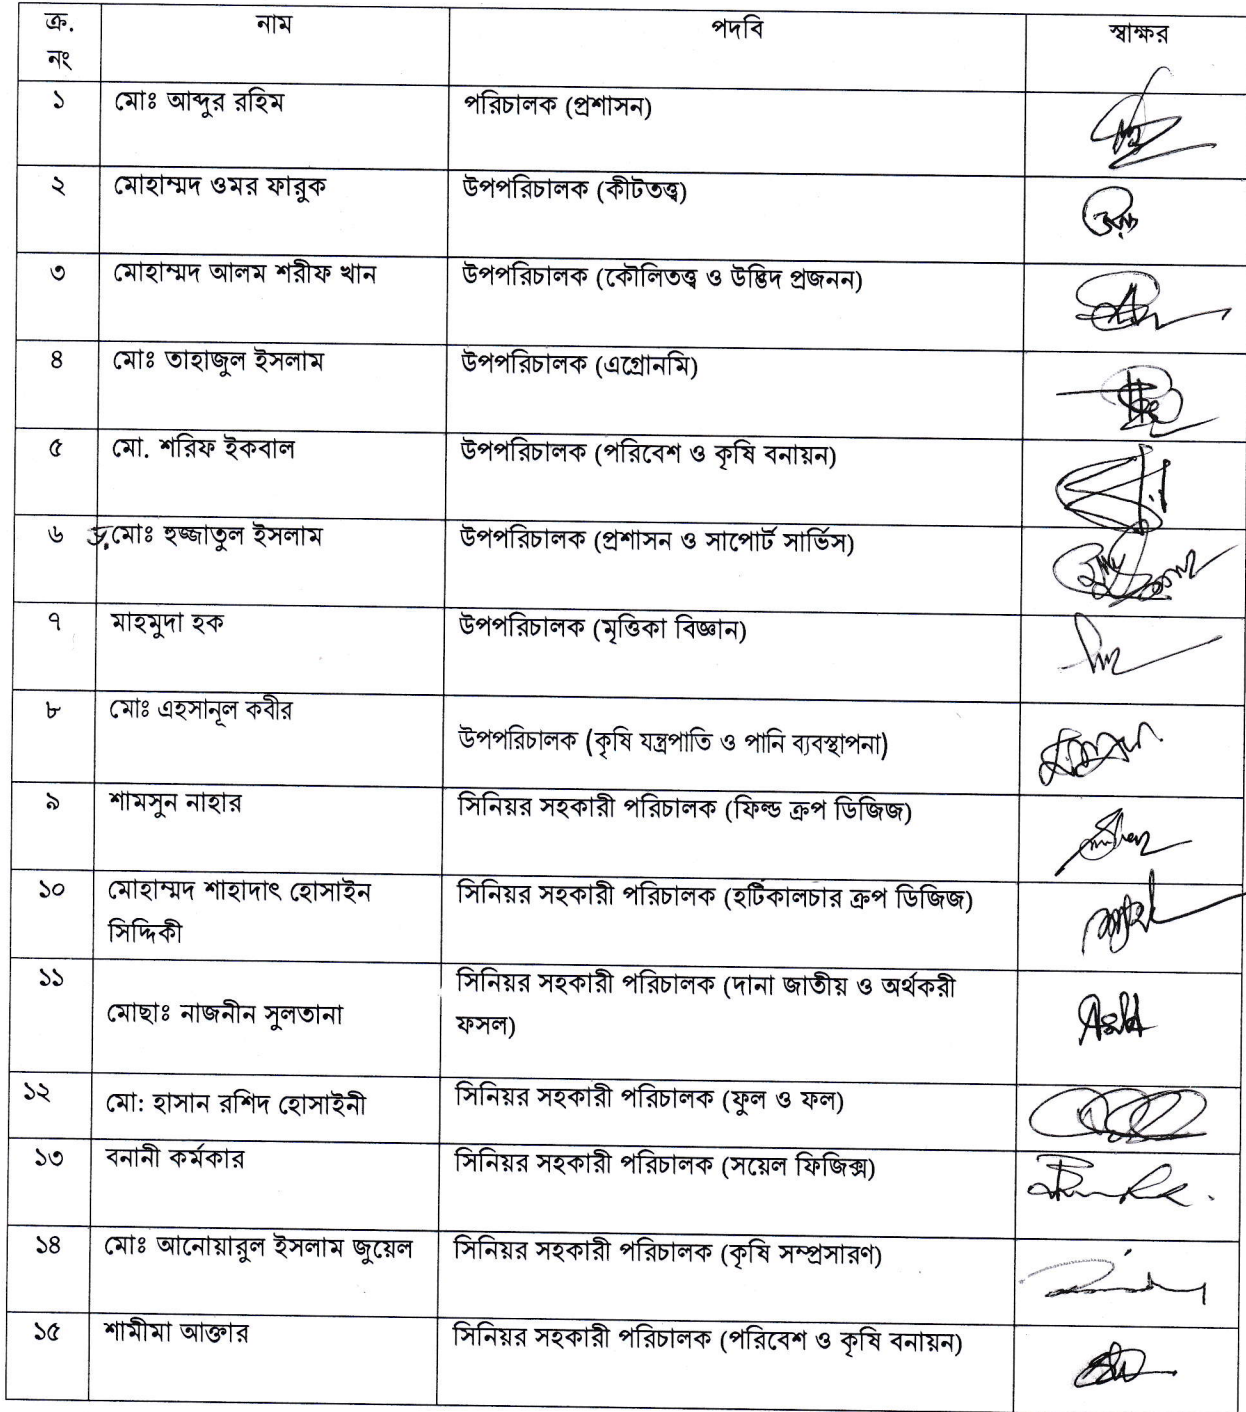 ক্র. নাম পদবি স্বাক্ষর
নং
১ মোঃ আব্দুর রহিম পরিচালক (প্রশাসন)
২ মোহাম্মদ ওমর ফারুক উপপরিচালক (কীটতত্ত্ব)
৩ মোহাম্মদ আলম শরীফ খান উপপরিচালক (কৌলিতত্ত্ব ও উদ্ভিদ প্রজনন)
৪ মোঃ তাহাজুল ইসলাম উপপরিচালক (এগ্রোনমি)
৫ মো. শরিফ ইকবাল উপপরিচালক (পরিবেশ ও কৃষি বনায়ন)
৬ ড. মোঃ হুজ্জাতুল ইসলাম উপপরিচালক (প্রশাসন ও সাপোর্ট সার্ভিস)
৭ মাহমুদা হক উপপরিচালক (মৃত্তিকা বিজ্ঞান)
৮ মোঃ এহসানূল কবীর
উপপরিচালক (কৃষি যন্ত্রপাতি ও পানি ব্যবস্থাপনা)
৯ শামসুন নাহার সিনিয়র সহকারী পরিচালক (ফিল্ড ক্রপ ডিজিজ)
১০ মোহাম্মদ শাহাদাৎ হোসাইন সিনিয়র সহকারী পরিচালক (হর্টিকালচার ক্রপ ডিজিজ)
সিদ্দিকী
১১ সিনিয়র সহকারী পরিচালক (দানা জাতীয় ও অর্থকরী
মোছাঃ নাজনীন সুলতানা ফসল)
১২ মো: হাসান রশিদ হোসাইনী সিনিয়র সহকারী পরিচালক (ফুল ও ফল)
১৩ বনানী কর্মকার সিনিয়র সহকারী পরিচালক (সয়েল ফিজিক্স)
১৪ মোঃ আনোয়ারুল ইসলাম জুয়েল সিনিয়র সহকারী পরিচালক (কৃষি সম্প্রসারণ)
১৫ শামীমা আক্তার সিনিয়র সহকারী পরিচালক (পরিবেশ ও কৃষি বনায়ন)